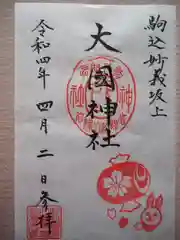 駒込妙義坂上
大國神社
令和四年四月二日参拝